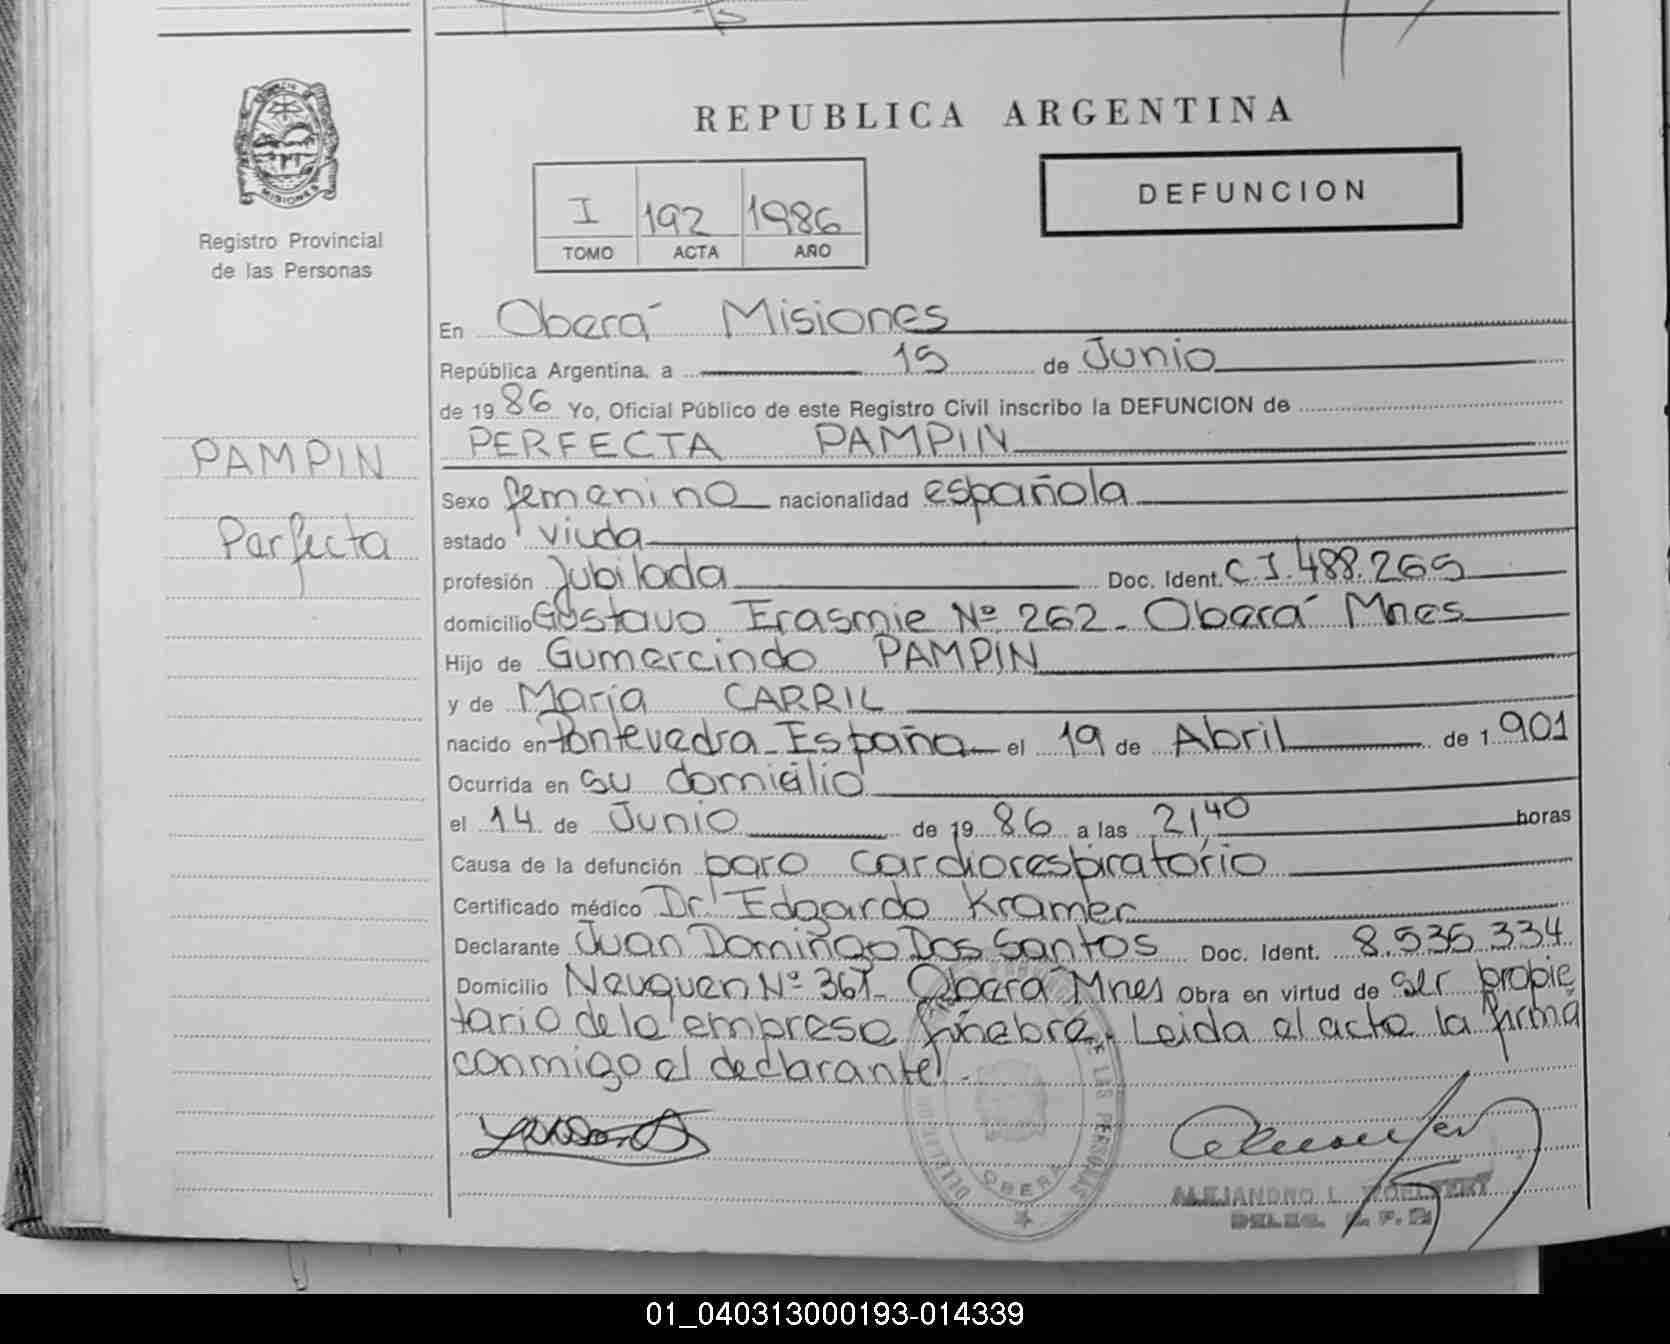 REPUBLICA ARGENTINA
MISIONES
Registro Provincial
de las Personas
I 192 1986
TOMO ACTA AÑO
DEFUNCION
En Oberá Misiones
República Argentina, a 15 de Junio
de 19 86 Yo, Oficial Público de este Registro Civil inscribo la DEFUNCION de
PERFECTA PAMPIN
PAMPIN
Perfecta
Sexo femenino nacionalidad española
estado viuda
profesión Jubilada Doc. Ident. C.I. 488.265
domicilio Gustavo Erasmie Nº 262 - Oberá Mnes
Hijo de Gumercindo PAMPIN
y de María CARRIL
nacido en Pontevedra - España el 19 de Abril de 1.901
Ocurrida en su domicilio
el 14 de Junio de 19 86 a las 21,40 horas
Causa de la defunción paro cardiorespiratorio
Certificado médico Dr. Edgardo Kramer
Declarante Juan Domingo Dos Santos Doc. Ident. 8.535.334
Domicilio Neuquen Nº 367 - Oberá Mnes Obra en virtud de ser propie
tario de la empresa fúnebre. Leida el acta la firma
conmigo el declarante.
DE LAS PERSONAS
OBERA
ALEJANDRO L.
01_040313000193-014339